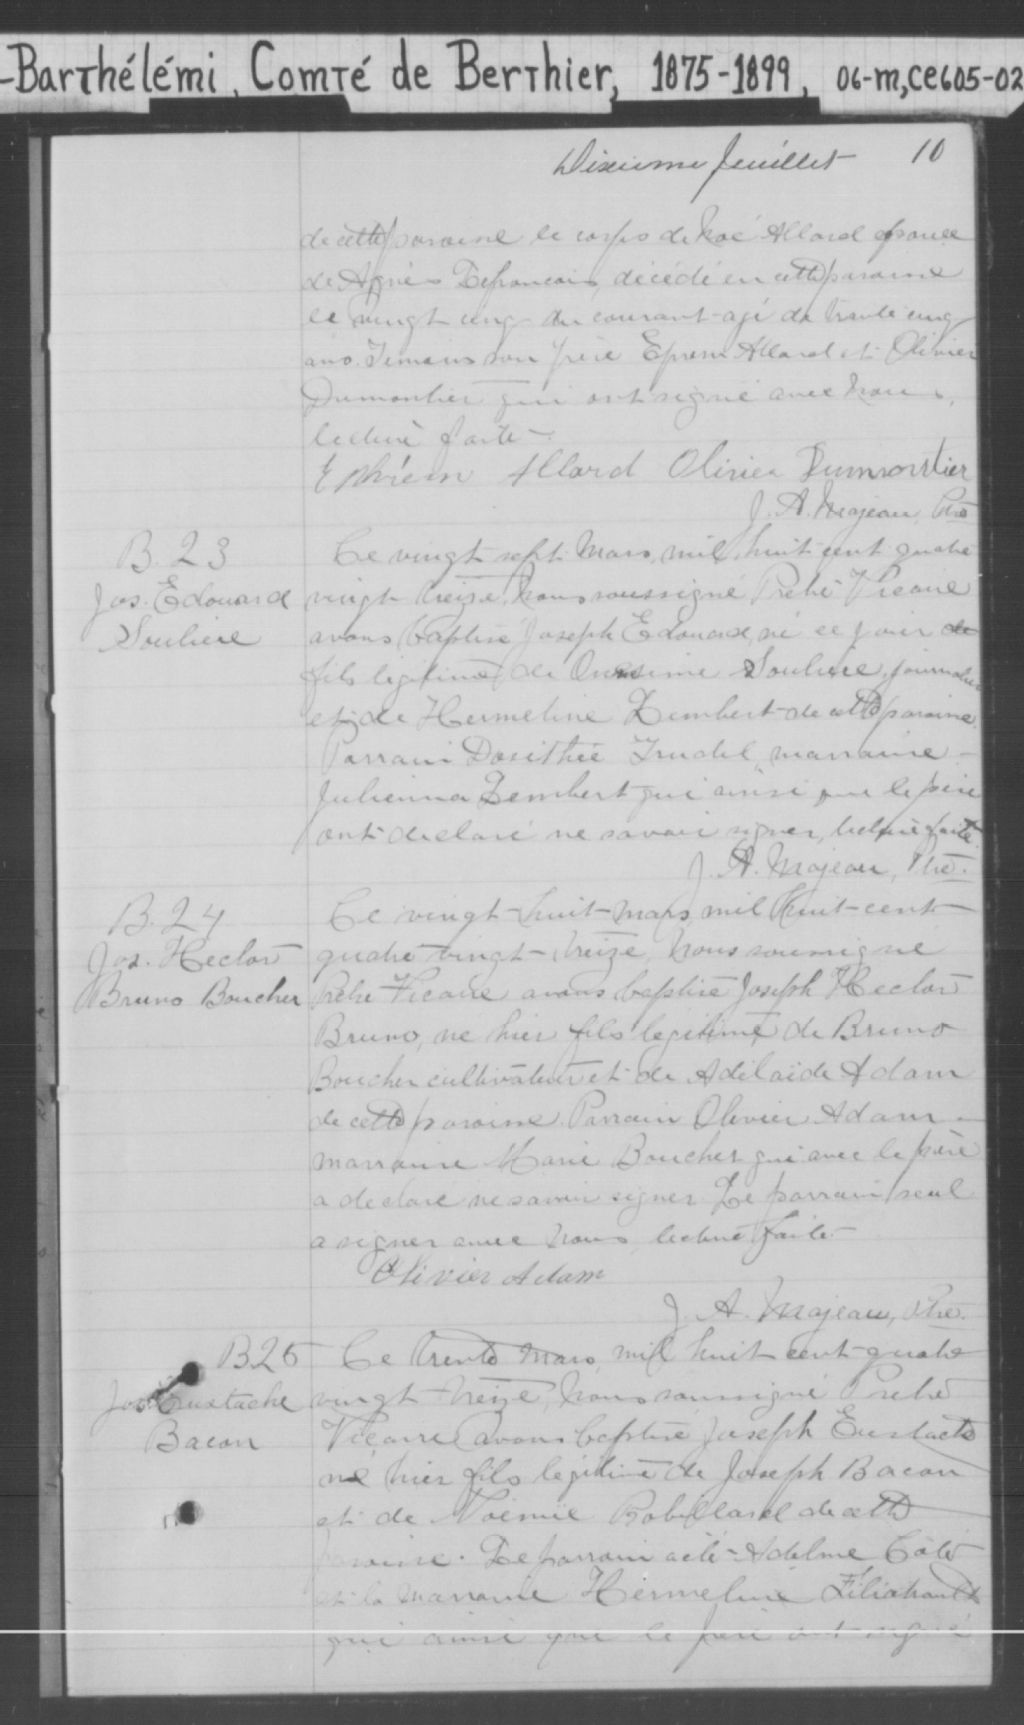 -Barthélémi, Comté de Berthier, 1875-1899, 06-M,CE605-02
Dixieme feuillet 10
de cette paroisse le corps de Noé Allard epoux
de Agnès Lefrancois, décédé en cette paroisse
le vingt cinq du courant agé de trente cinq
ans. Temoins son frère Eprem Allard et Olivier
Dumontier qui ont signé avec nous,
lecture faite.
Ephrem Allard Olivier Dumontier
J. A. Majeau, Ptre
B. 23
Jos. Edouard
Souliere
Ce vingt sept Mars, mil huit cent quatre
vingt treize, nous soussigné Pretre Vicaire
avons baptisé Joseph Edouard, né ce jour
fils legitime de Onesime Souliere, journalier
et de Hermeline Lembert de cette paroisse.
Parrain Dosithée Trudel, marraine
Julienna Lembert qui ainsi que le père
ont declaré ne savoir signer, lecture faite.
J. A. Majeau, Ptre.
B. 24
Jos. Hector
Bruno Boucher
Ce vingt-huit-mars, mil huit-cent-
quatre vingt-treize, nous soussigné
Prêtre Vicaire avons baptisé Joseph Hector
Bruno, né hier fils legitime de Bruno
Boucher cultivateur et de Adélaïde Adam
de cette paroisse. Parrain Olivier Adam
marraine Marie Boucher qui avec le père
a declaré ne savoir signer. Le parrain seul
a signer avec nous, lecture faite.
Olivier Adam
J. A. Majeau, Ptre.
B25
Jos Eustache
Bacon
Ce trente Mars, mil huit cent-quatre
vingt treize, nous soussigné Pretre
Vicaire avons baptisé Joseph Eustache
né hier fils légitime de Joseph Bacon
et de Noémie Robillard de cette
paroisse. Le parrain a été Adelme Coté
et la marraine Hermeline Filiatrault
qui ainsi que le père ont signé